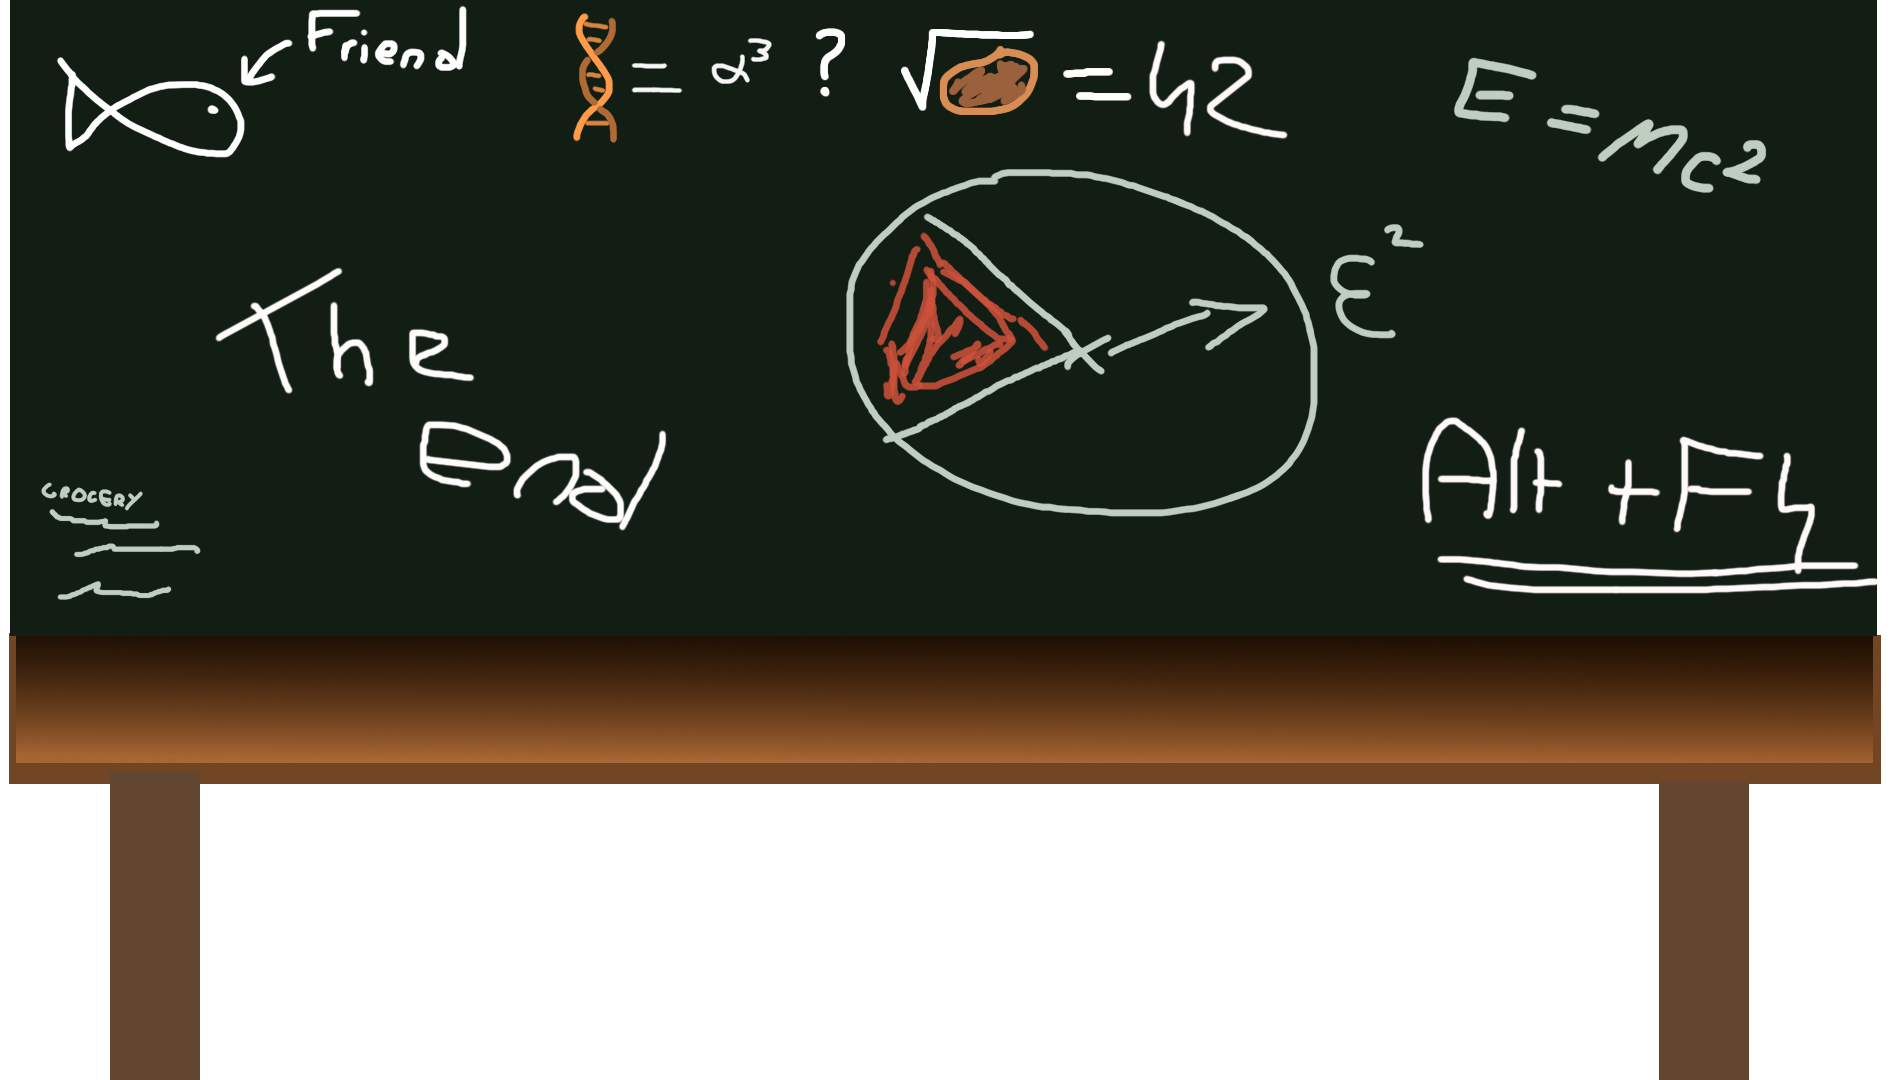 Friend
= α³ ?
√ = 42
E = mc²
ε²
The
End
GROCERY
Alt + F4